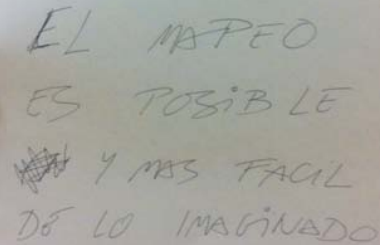 EL MAPEO
ES POSiBLE
Y MAS FACIL
DE LO IMAGiNADO